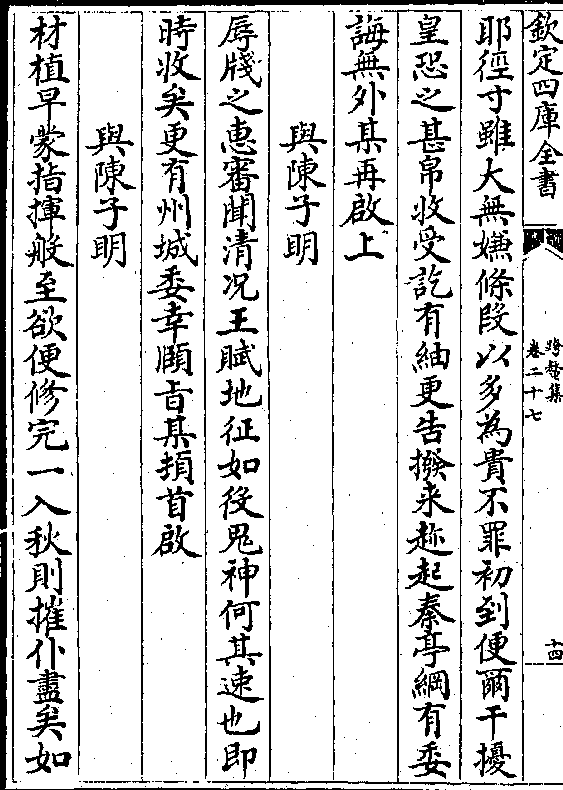 欽定四庫全書
跨鼇集
卷二十七
十四
耶徑寸雖大無嫌條段以多為貴不罪初到便爾干擾
皇恐之甚帛收受訖有紬更告撥来趂起秦亭綱有委
誨無外某再啟上
與陳子明
辱牋之恵審聞清况王賦地征如役鬼神何其速也即
時收矣更有州城委幸頤旨某頓首啟
與陳子明
材植早蒙指揮般至欲便修完一入秋則摧仆盡矣如